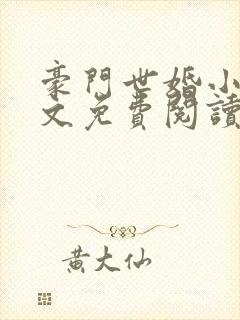 豪門世婚小
文免費閱讀
黃大仙